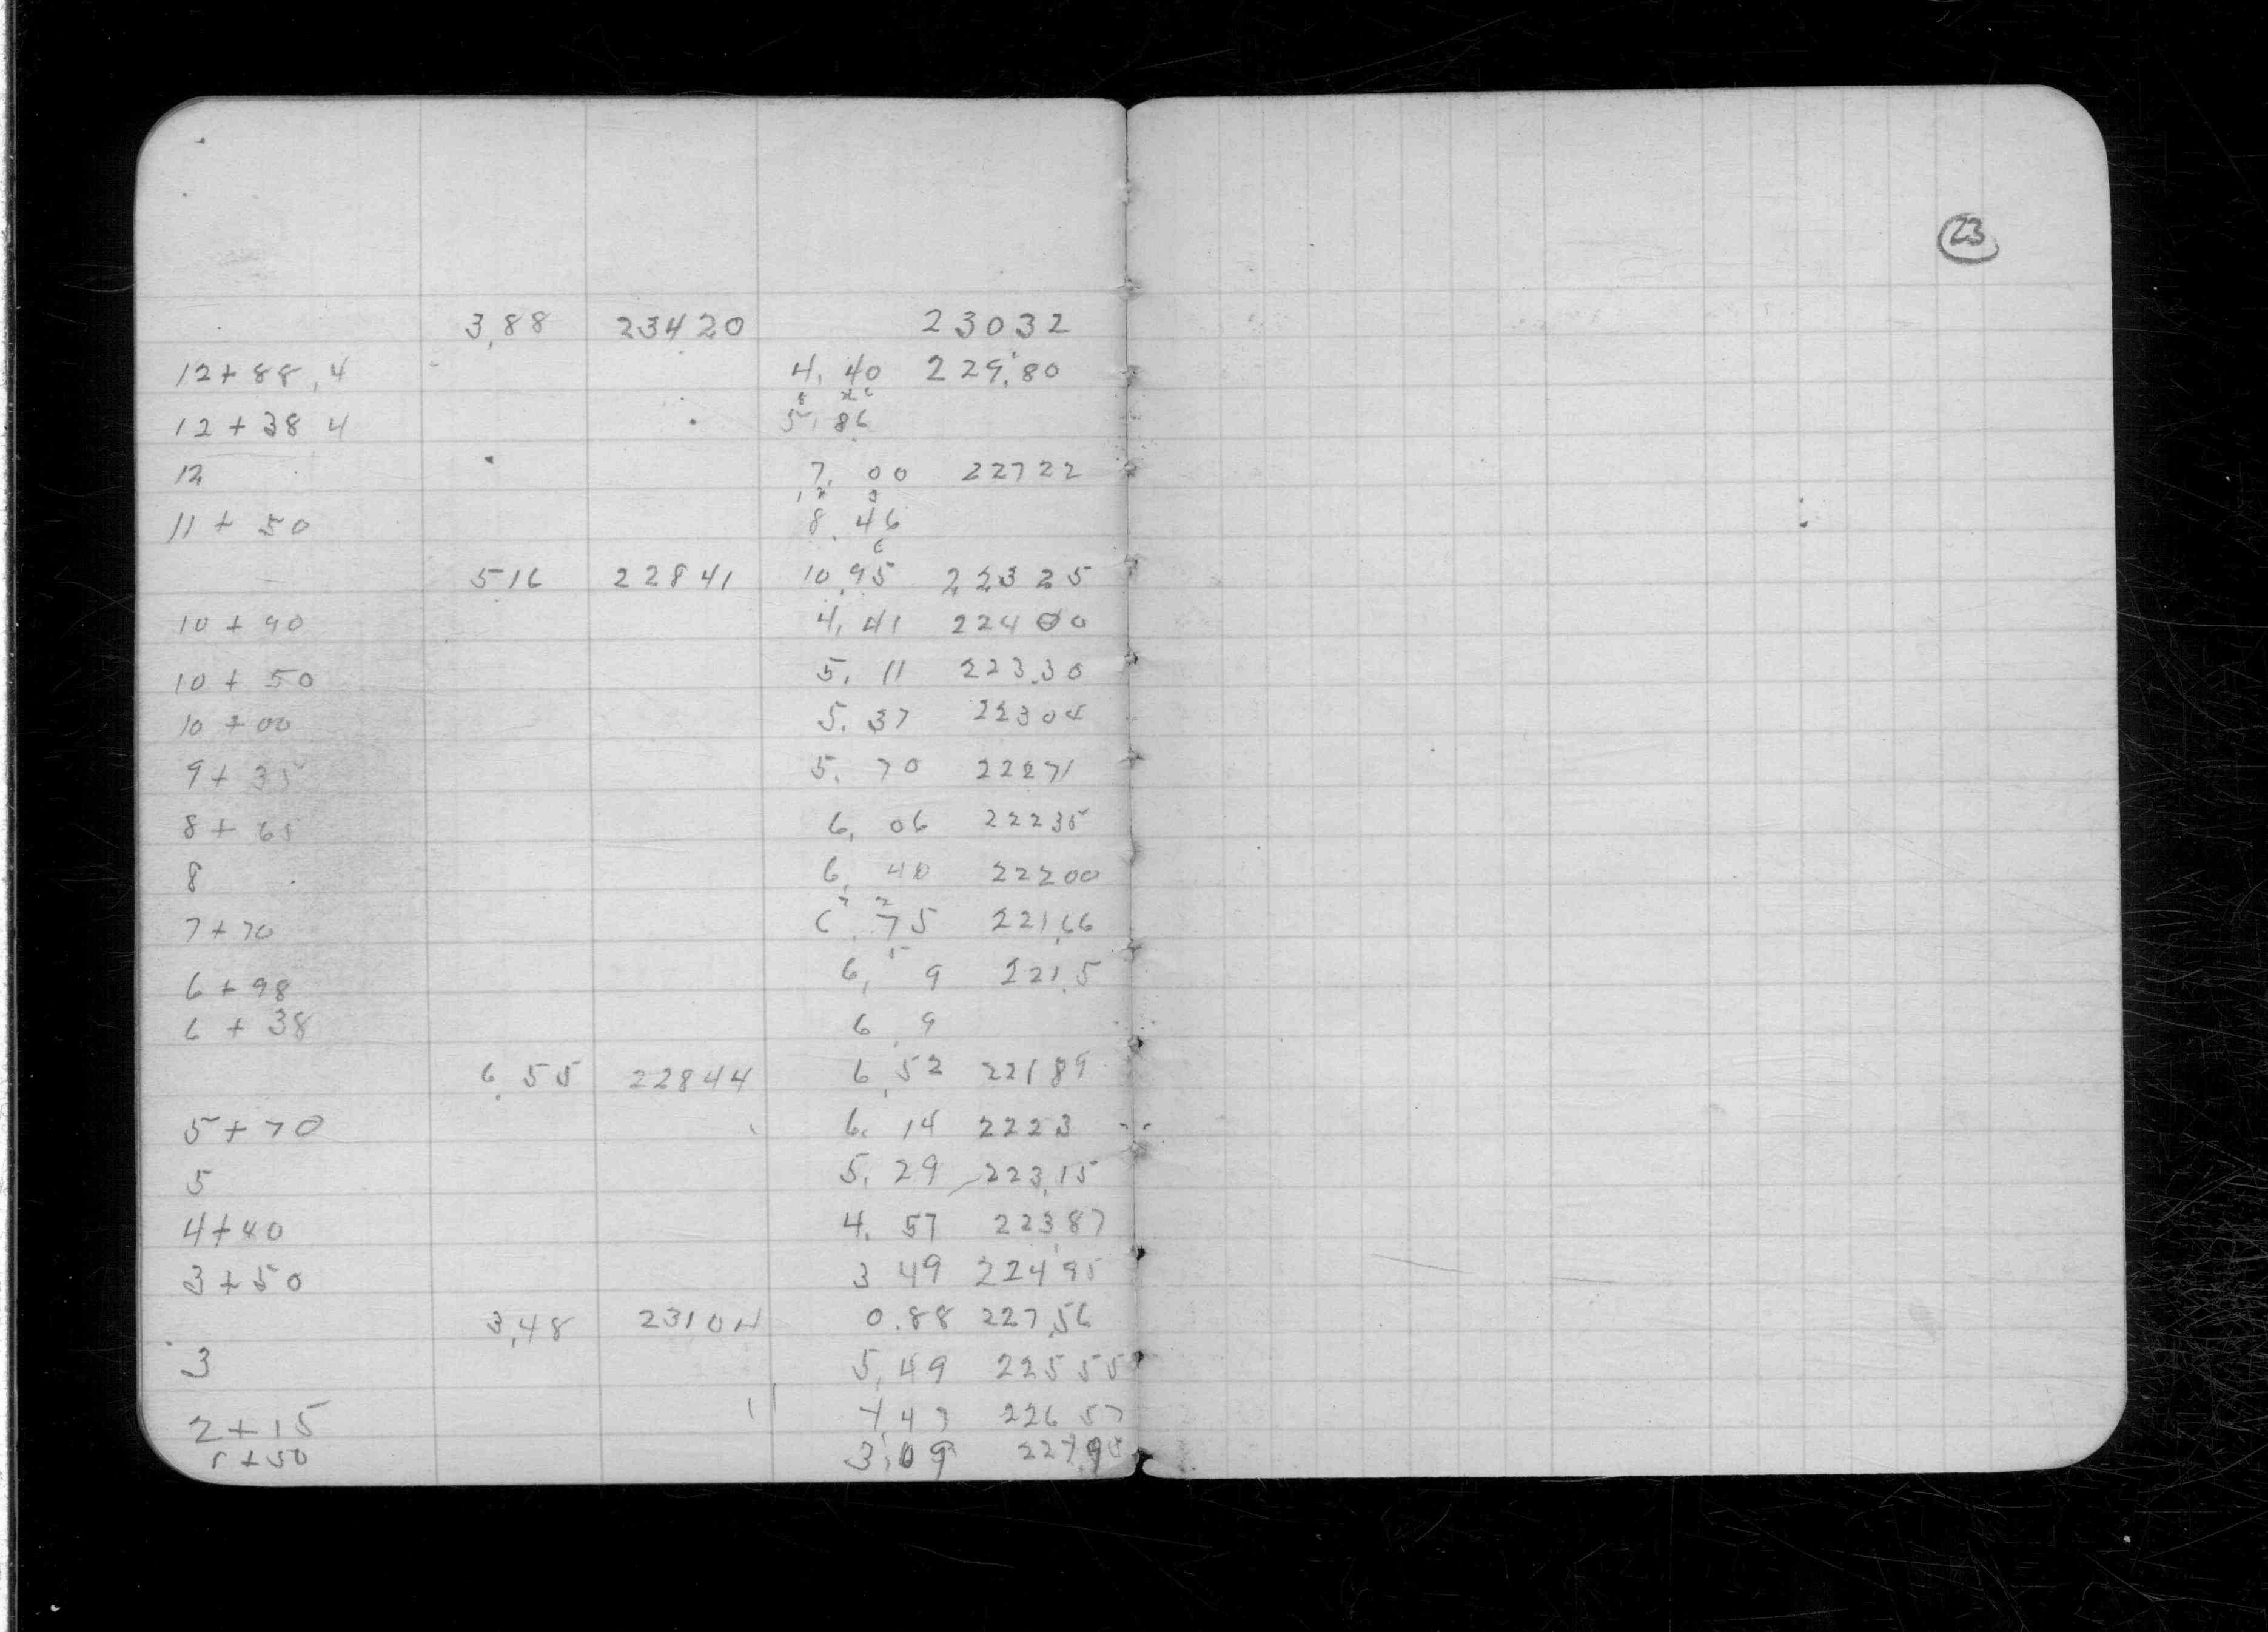 23
3.88 23420 23032
12+88.4 4.40 229.80
12+38 4 5.86
12 7.00 22722
11+50 8.46
516 22841 10.95 22325
10+90 4.41 22400
10+50 5.11 223.30
10+00 5.37 22304
9+35 5.70 22271
8+65 6.06 22235
8 6.40 22200
7+70 6.75 221.66
6+98 6.9 221.5
6+38 6.9
6.55 22844 6.52 22189
5+70 6.14 2223
5 5.29 223.15
4+40 4.57 223.87
3+50 3 49 224 95
3.48 23104 0.88 227.56
3 5.49 22555
2+15 4.47 226 57
1+50 3.09 227.95